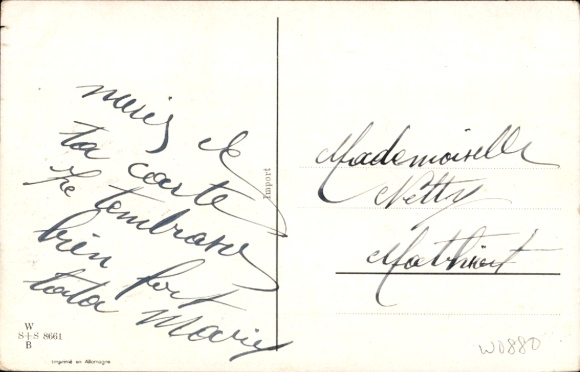 merci de
ta carte
Je tembrasse
bien fort
tata Marie
Import
Mademoiselle
Netty
Mathiot
W
S+S 8661
B
Imprimé en Allemagne
W0880